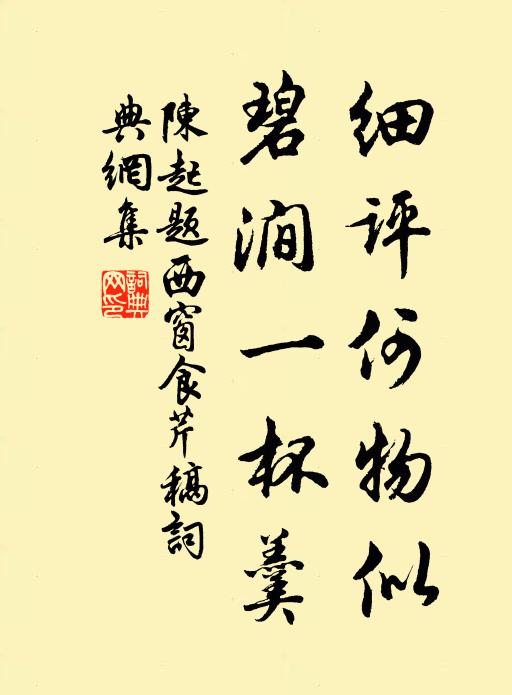 细评何物似
碧涧一杯羹
陳起题西窗食芹稿詞
典網集
詞典
网印